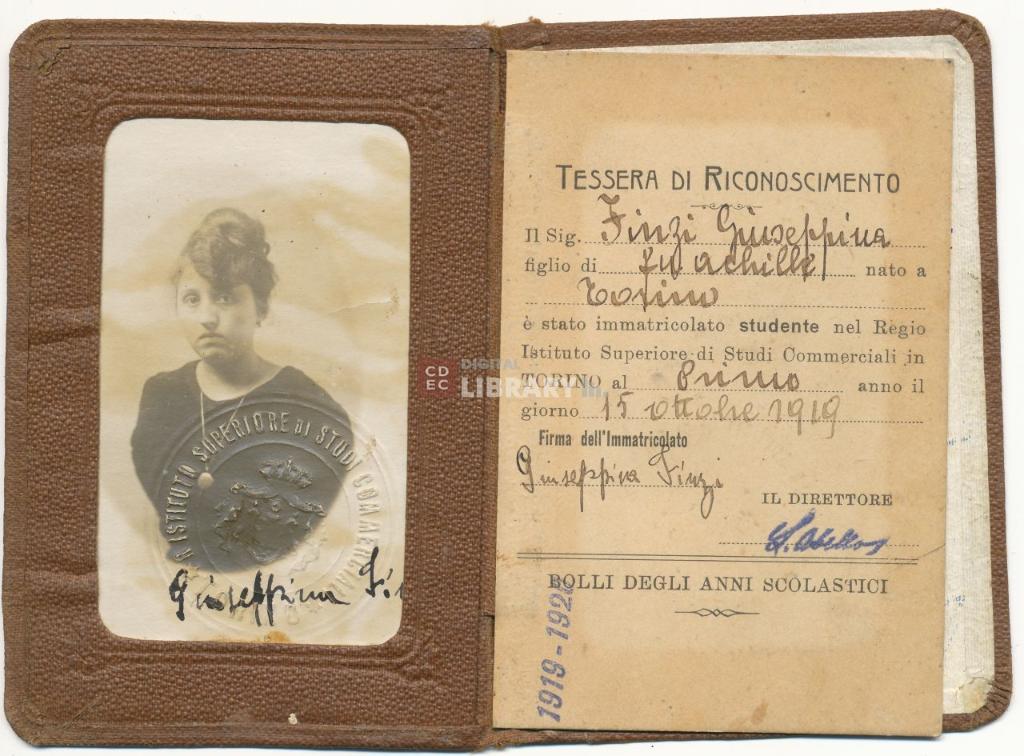 R ISTITUTO SUPERIORE DI STUDI COMMERCIALI
Giuseppina Fi
TESSERA DI RICONOSCIMENTO
Il Sig. Finzi Giuseppina
figlio di fu Achille nato a
Torino
è stato immatricolato studente nel Regio
Istituto Superiore di Studi Commerciali in
TORINO al Primo anno il
giorno 15 ottobre 1919
Firma dell'Immatricolato
Giuseppina Finzi
IL DIRETTORE
BOLLI DEGLI ANNI SCOLASTICI
1919-1920
CDEC DIGITAL LIBRARY